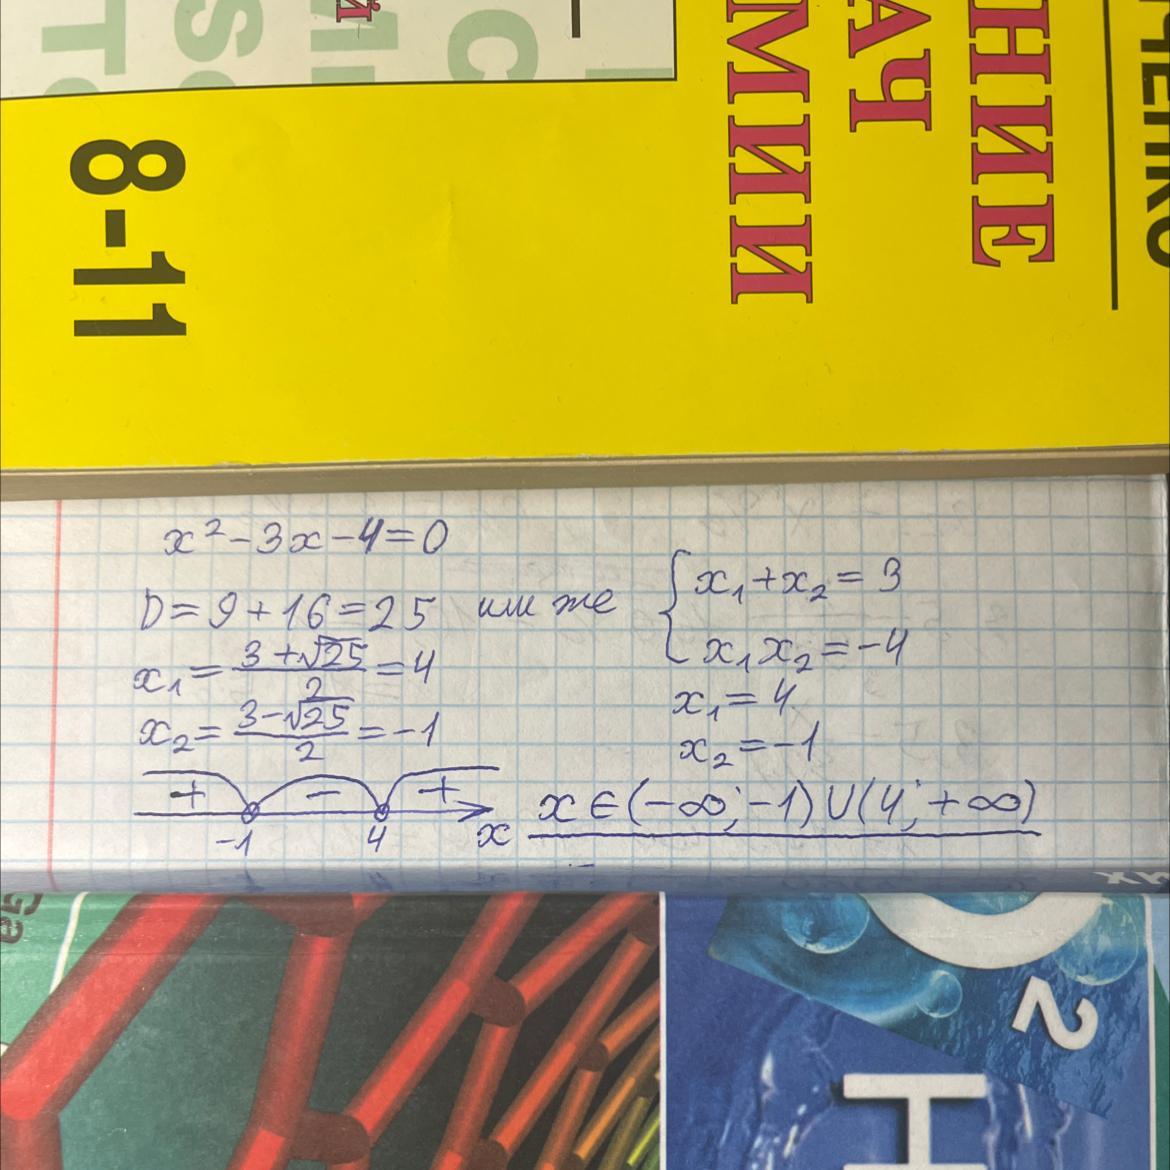 НИЕ
АЧ
МИИ
8-11
x² - 3x - 4 = 0
D = 9 + 16 = 25 или же { x₁ + x₂ = 3
x₁x₂ = -4
x₁ = (3 + √25)/2 = 4
x₂ = (3 - √25)/2 = -1
x₁ = 4
x₂ = -1
+ - +
-1 4 x
x ∈ (-∞; -1) ∪ (4; +∞)
Ga
O
2
H